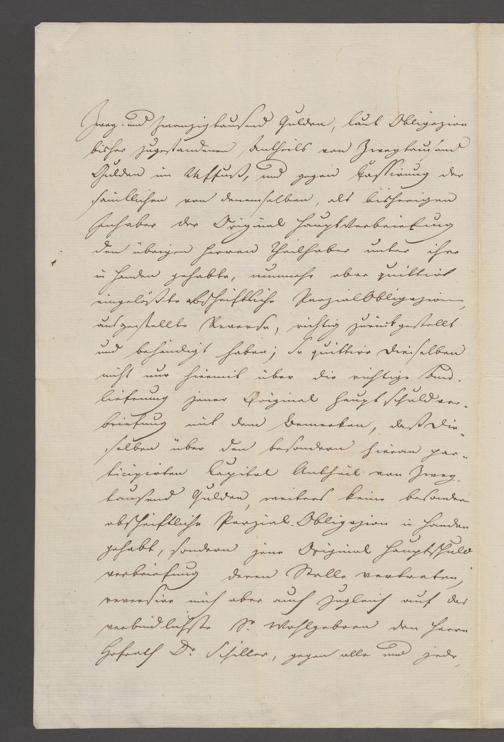 Zwey und zwanzigtausend Gulden, laut Obligazion
bisher zugestandenen Antheils von Zweytausend
Gulden im 24 fl Fuß, und gegen Cassirung der
sämtlichen von demselben, als bisherigen
Inhaber der Original Hauptverbriefung
den übrigen Herren Theilhaber unter ihre
in Handen gehabte, nunmehr aber quittirt
eingelößte abschriftliche Parzial Obligazionen,
ausgestellte Reverse, richtig zurückgestellt
und behändigt haben; So quittire Dieselben
nicht nur hiemit über die richtige Aus-
lieferung jener Original Hauptschuldver-
briefung mit dem Bemerken, daß Die-
selben über den besondern hieran par-
ticipirten Capital Antheil von Zwey-
tausend Gulden, weiters keine besondere
abschriftliche Parzial-Obligazion in Handen
gehabt, sondern jene Original Hauptschuld
verbriefung deren Stelle vertreten,
reversire mich aber auch zugleich auf das
verbindlichste Sr Wohlgeboren den Herrn
Hofrath Dr. Schiller, gegen alle und jede